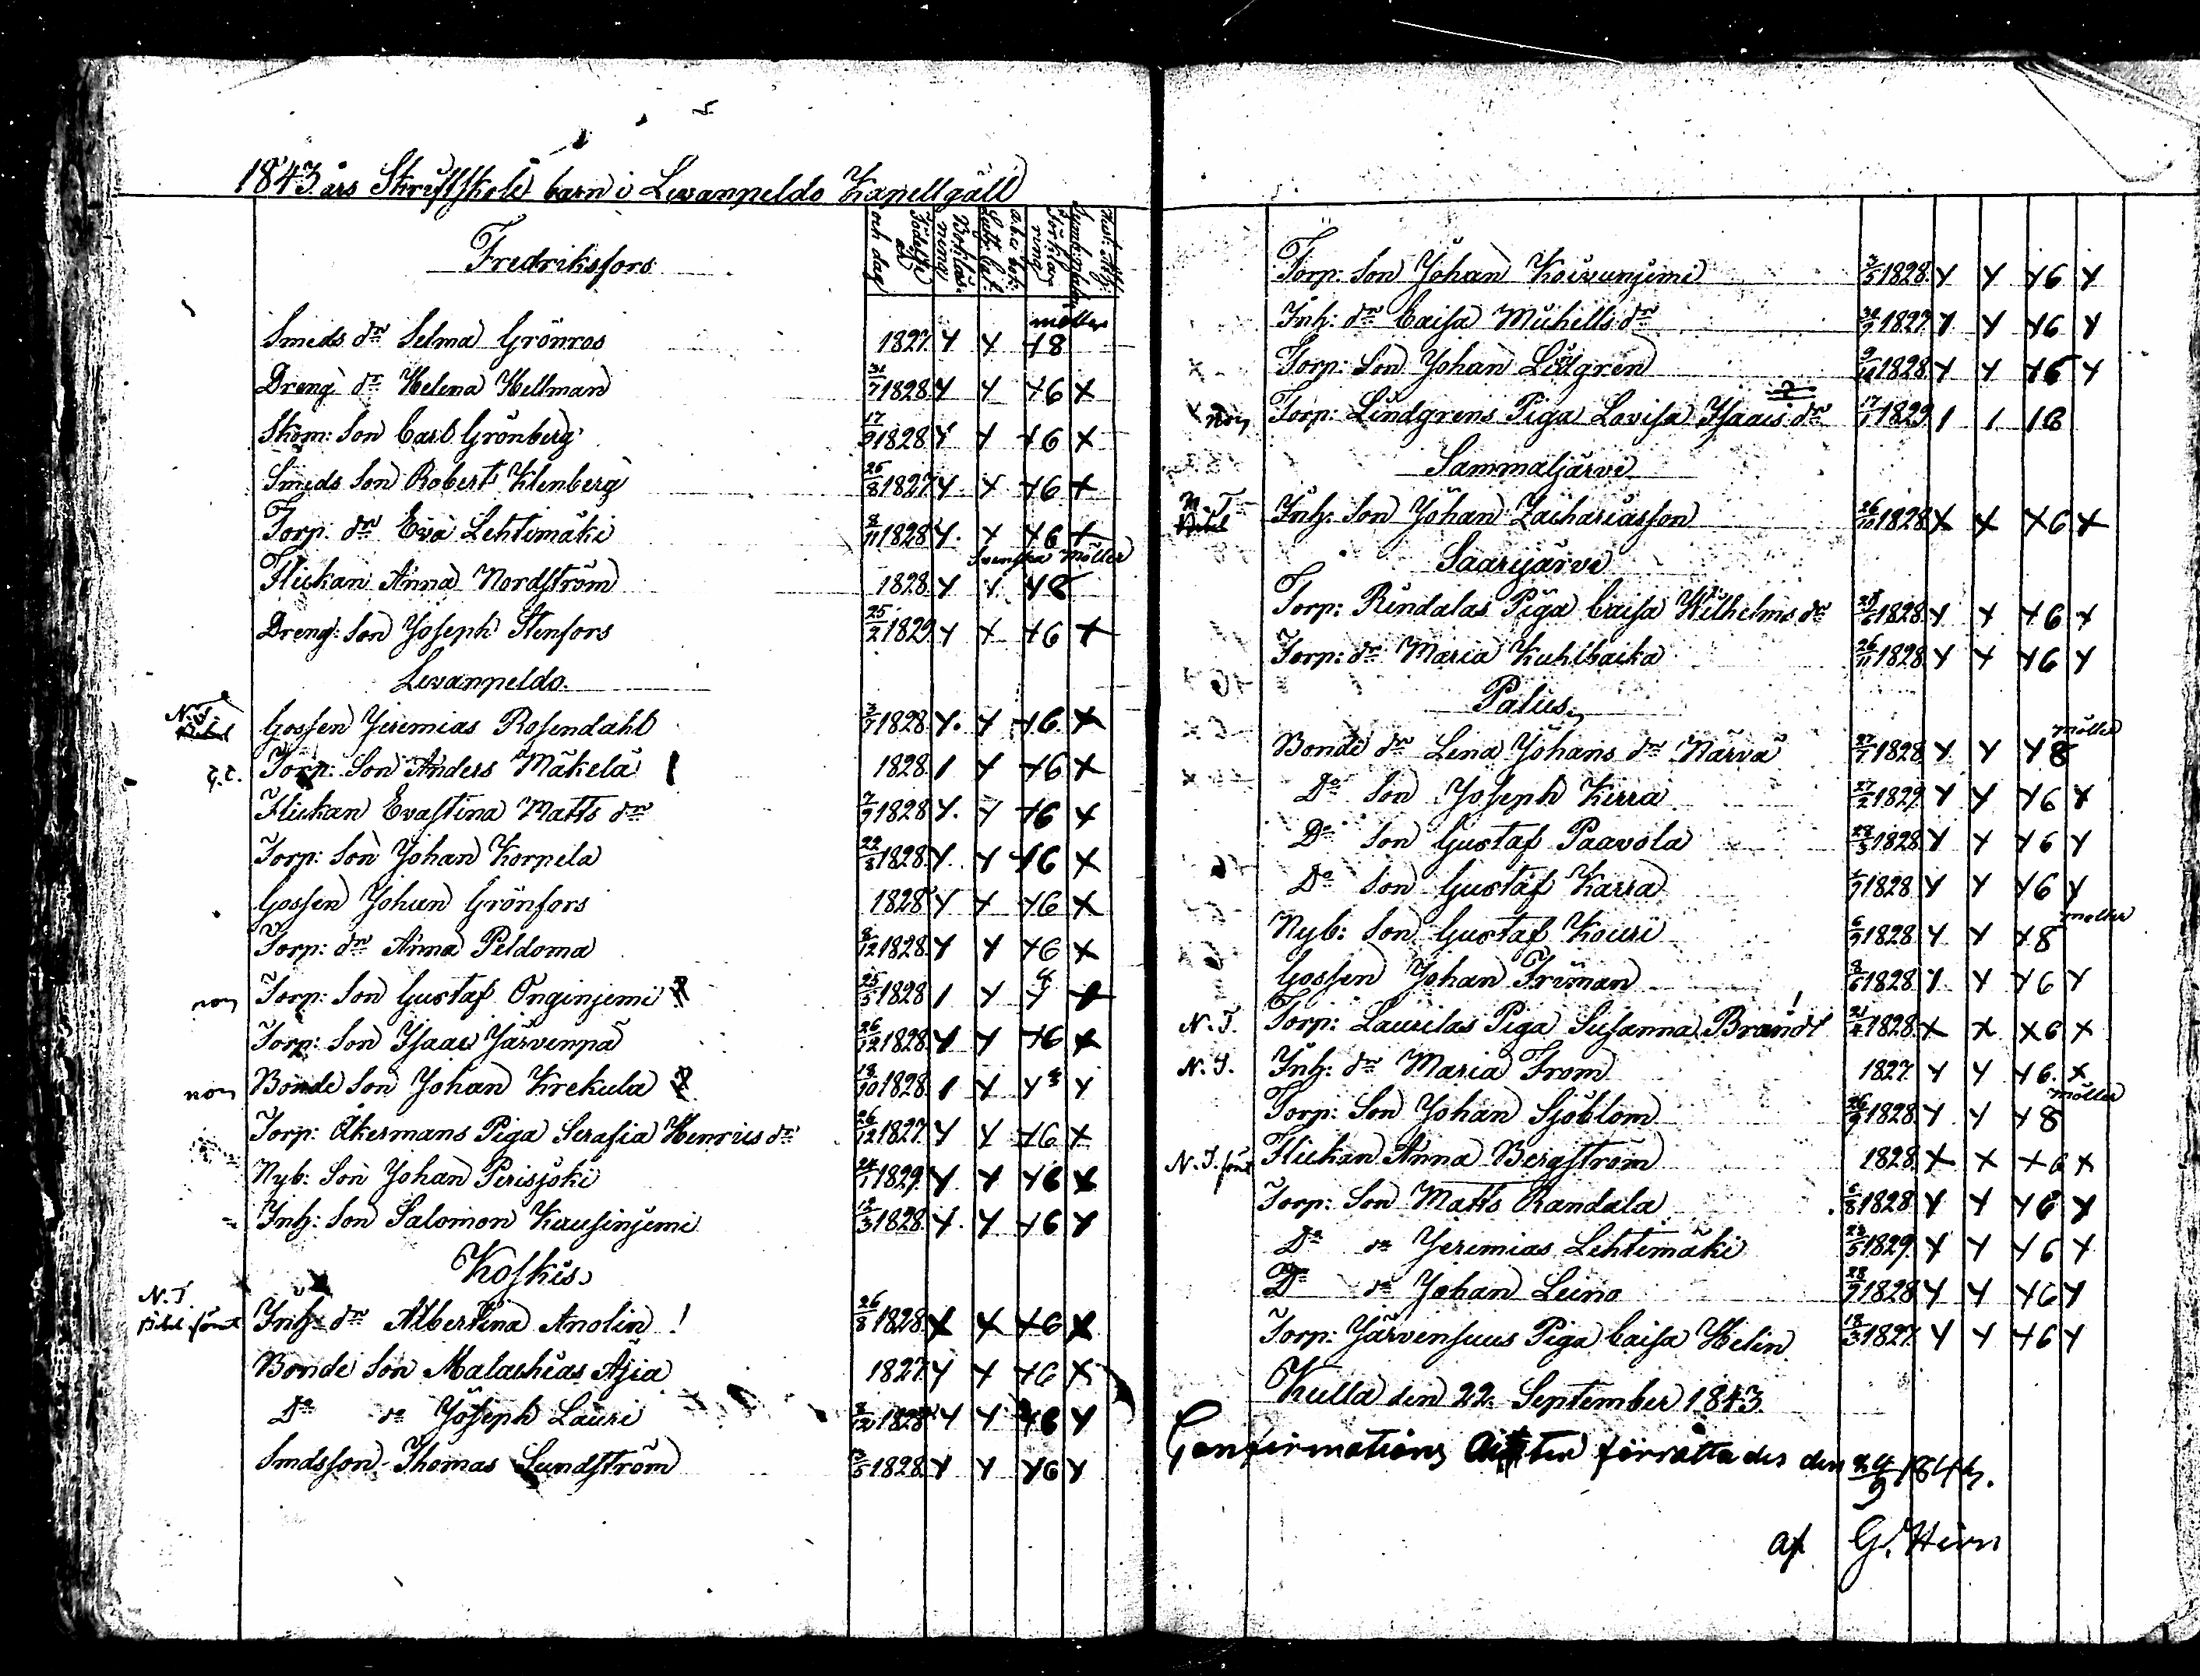 1843 års Skriftskole barn i Lewanpeldo Kapellgäll
Födelse år och dag
Fredriksfors
möller
Smeds dr Selma Grönros 1827 x x x8
Dreng dr Helena Hellman 31/7 1828 x x x6 x
Skom: Son Carl Grönberg 17/9 1828 x x x6 x
Smeds Son Robert Klenberg 26/8 1827 x x x6 x
Torp. dr Eva Lehtimäki 8/11 1828 x x x6 x
Svenska Möller
Flickan Anna Nordström 1828 x x x8
Dreng: Son Joseph Stenfors 25/2 1829 x x x6 x
Lewanpeldo
N.T. Bibel Gossen Jeremias Rosendahl 3/7 1828 x x x6 x
Torp: Son Anders Mäkelä 1828 1 x x6 x
Flickan Evastina Matts dr 7/9 1828 x x x6 x
Torp: Son Johan Korpela 22/8 1828 x x x6 x
Gossen Johan Grönfors 1828 x x x6 x
Torp: dr Anna Peldoma 8/12 1828 x x x6 x
non Torp: Son Gustaf Onginjemi 25/5 1828 1 x x
Torp: Son Isaac Järvenpä 26/12 1828 x x x6 x
non Bonde Son Johan Krekula 18/10 1828 1 x x x
Torp: Åkermans Piga Serafia Henrics dr 26/12 1827 x x x6 x
Nyb: Son Johan Perisjoki 24/1 1829 x x x6 x
Inh: Son Salomon Kausinjemi 12/3 1828 x x x6 x
Koskis
N.T. Bibel förut Inh: dr Albertina Anolin ! 26/8 1828 x x x6 x
Bonde Son Malachias Äjia 1827 x x x6 x
Do do Joseph Lauri 8/12 1828 x x x6 x
Smdsson Thomas Sundström 3/5 1828 x x x6 x
Torp: Son Johan Koivunjemi 3/5 1828 x x x6 x
Inh: dr Caisa Michells dr 1827 x x x6 x
Torp: Son Johan Lidgren 9/10 1828 x x x6 x
non Torp: Lindgrens Piga Lovisa Isaacs dr 17/1 1829 1 1 18
Sammaljärvi
N.T. Bibel Inh: Son Johan Zachariasson 26/10 1828 x x x6 x
Saarijärvi
Torp: Rindalas Piga Caisa Wilhelms dr 28/6 1828 x x x6 x
Torp: dr Maria Kuhlbacka 26/11 1828 x x x6 x
Palus
möller
Bonde dr Lena Johans dr Närvä 27/7 1828 x x x8
Do Son Joseph Kerra 27/2 1829 x x x6 x
Do Son Gustaf Paavola 28/5 1828 x x x6 x
Do Son Gustaf Karra 1828 x x x6 x
möller
Nyb: Son Gustaf Kouri 6/9 1828 x x x8
Gossen Johan Friman 8/6 1828 x x x6 x
N.T. Torp: Laurilas Piga Susanna Brandt ! 21/4 1828 x x x6 x
N.T. Inh: dr Maria From 1827 x x x6 x
möller
Torp: Son Johan Sjöblom 26/9 1828 x x x8
N.T. förut Flickan Anna Bergström 1828 x x x6 x
Torp: Son Matts Randala 6/8 1828 x x x6 x
Do do Jeremias Lehtimäki 23/5 1829 x x x6 x
Do do Johan Leino 28/9 1828 x x x6 x
Torp: Järvensuus Piga Caisa Helin 18/3 1827 x x x6 x
Kulla den 22 September 1843
Confirmations Akten förrättades den 24/9 1843.
af G. Hirn